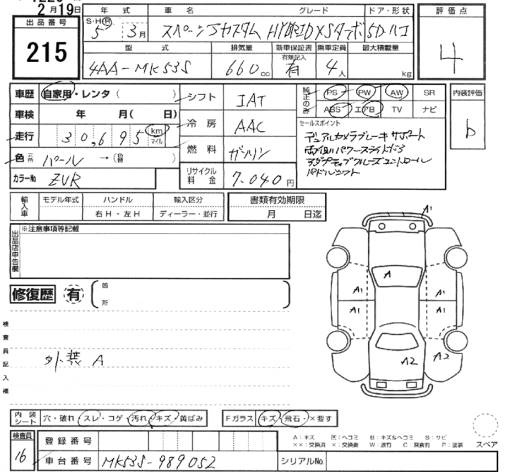 2月19日
出品番号 年式 車名 グレード ドア・形状 評価点
215 S・H・R 5年 3月 スペーシアカスタム HYBRID XSターボ 5D ハコ 4
型式 排気量 新車保証書 乗車定員 最大積載量
有無記入
4AA-MK53S 660cc 有 4人 kg
車歴 自家用・レンタ( ) シフト IAT 純正のみ PS PW AW SR 内装評価
ABS エアB TV ナビ
車検 年 月( 日) 冷房 AAC セールスポイント b
走行 30,695 km マイル 燃料 ガソリン デュアルカメラブレーキサポート
色 パール →( ) 両側パワースライドドア
カラーNo ZVR リサイクル料金 7,040円 アダプティブクルーズコントロール
パドルシフト
輸入車 モデル年式 ハンドル 輸入区分 書類有効期限
右H・左H ディーラー・並行 月 日迄
出品店申告欄 ※注意事項等記載
修復歴 有 箇所
検査員記入欄
外装 A
A1
A1
A1 A1
A1
A2 A2
内装シート 穴・破れ スレ・コゲ 汚れ・キズ・黄ばみ Fガラス キズ 飛石・×要す
検査員 登録番号
16 車台番号 MK53S-989052 シリアルNo.
スペア